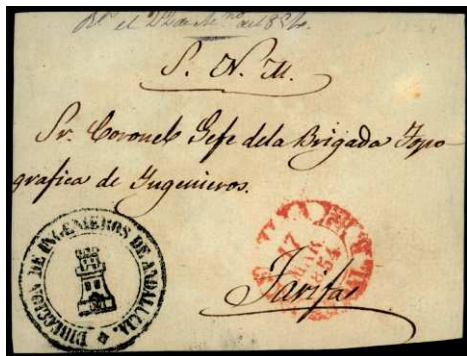 el 22 de
S. N. M.
Sr. Coronel Gefe dela Brigada Topo
grafica de Ingenieros.
DIRECCION DE INGENIEROS DE ANDALUCIA.
17
MAR
1854
Tarifa